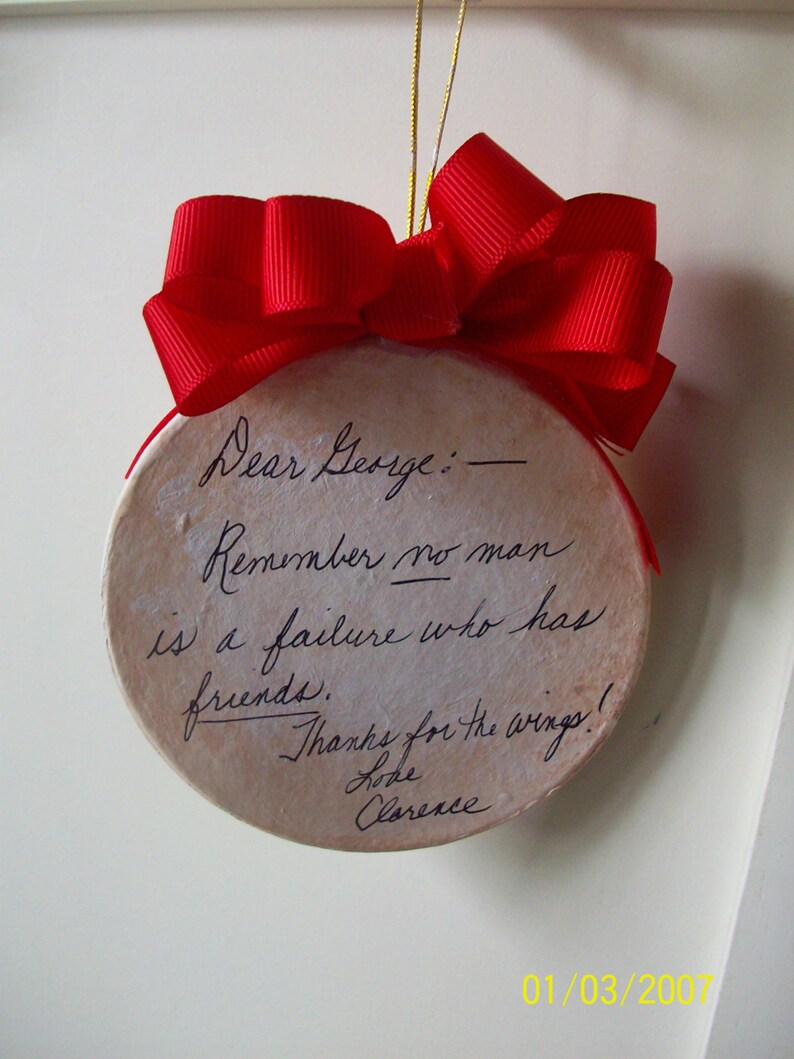 Dear George:—
Remember no man
is a failure who has
friends.
Thanks for the wings!
Love
Clarence
01/03/2007